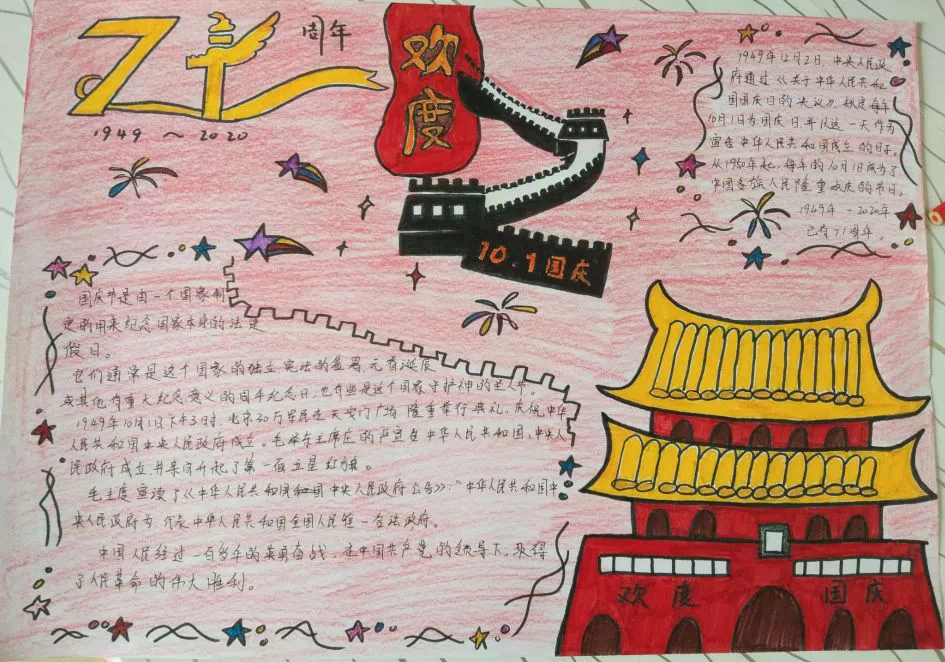 71
周年
1949 ~ 2020
欢
度
10.1国庆
1949年12月2日,中央人民政
府通过《关于中华人民共和
国国庆日的决议》,规定每年
10月1日为国庆日并以这一天作为
宣告中华人民共和国成立的日子。
从1950年起,每年的10月1日成为了
中国各族人民隆重欢庆的节日。
1949年-2020年
已有71周年。
国庆节是由一个国家制
定的用来纪念国家本身的法定
假日。
它们通常是这个国家的独立宪法的签署元首诞辰
或其他有重大纪念意义的周年纪念日,也有些是这个国家守护神的圣人节。
1949年10月1日下午3时,北京30万军民在天安门广场隆重举行典礼,庆祝中华
人民共和国中央人民政府成立。毛泽东主席庄的严宣在中华人民共和国,中央人
民政府成立并亲自升起了第一面五星红旗。
毛主度宣读了《中华人民共和国和国中央人民政府公告》:"中华人民共和国中
央人民政府为代表中华人民共和国全国人民唯一合法政府。
中国人民经过一百多年的英勇奋战,在中国共产党的领导下,取得
了人民革命的伟大胜利。
欢度 国庆